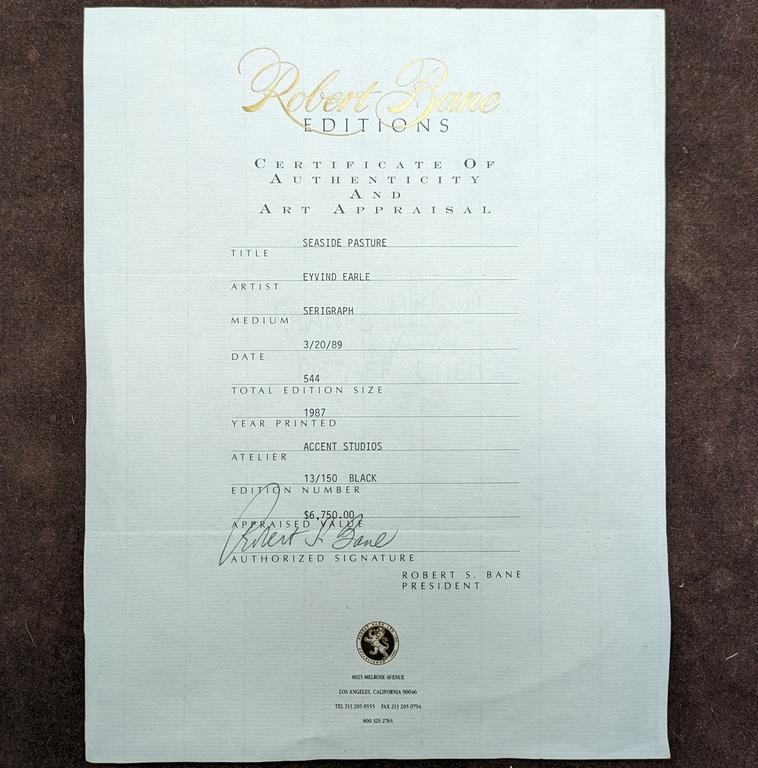 Robert Bane
EDITIONS
CERTIFICATE OF
AUTHENTICITY
AND
ART APPRAISAL
SEASIDE PASTURE
TITLE
EYVIND EARLE
ARTIST
SERIGRAPH
MEDIUM
3/20/89
DATE
544
TOTAL EDITION SIZE
1987
YEAR PRINTED
ACCENT STUDIOS
ATELIER
13/150 BLACK
EDITION NUMBER
$6,750.00
APPRAISED VALUE
Robert S. Bane
AUTHORIZED SIGNATURE
ROBERT S. BANE
PRESIDENT
8025 MELROSE AVENUE
LOS ANGELES, CALIFORNIA 90046
TEL 213 205 0555 FAX 213 205 0794
800 325 2765